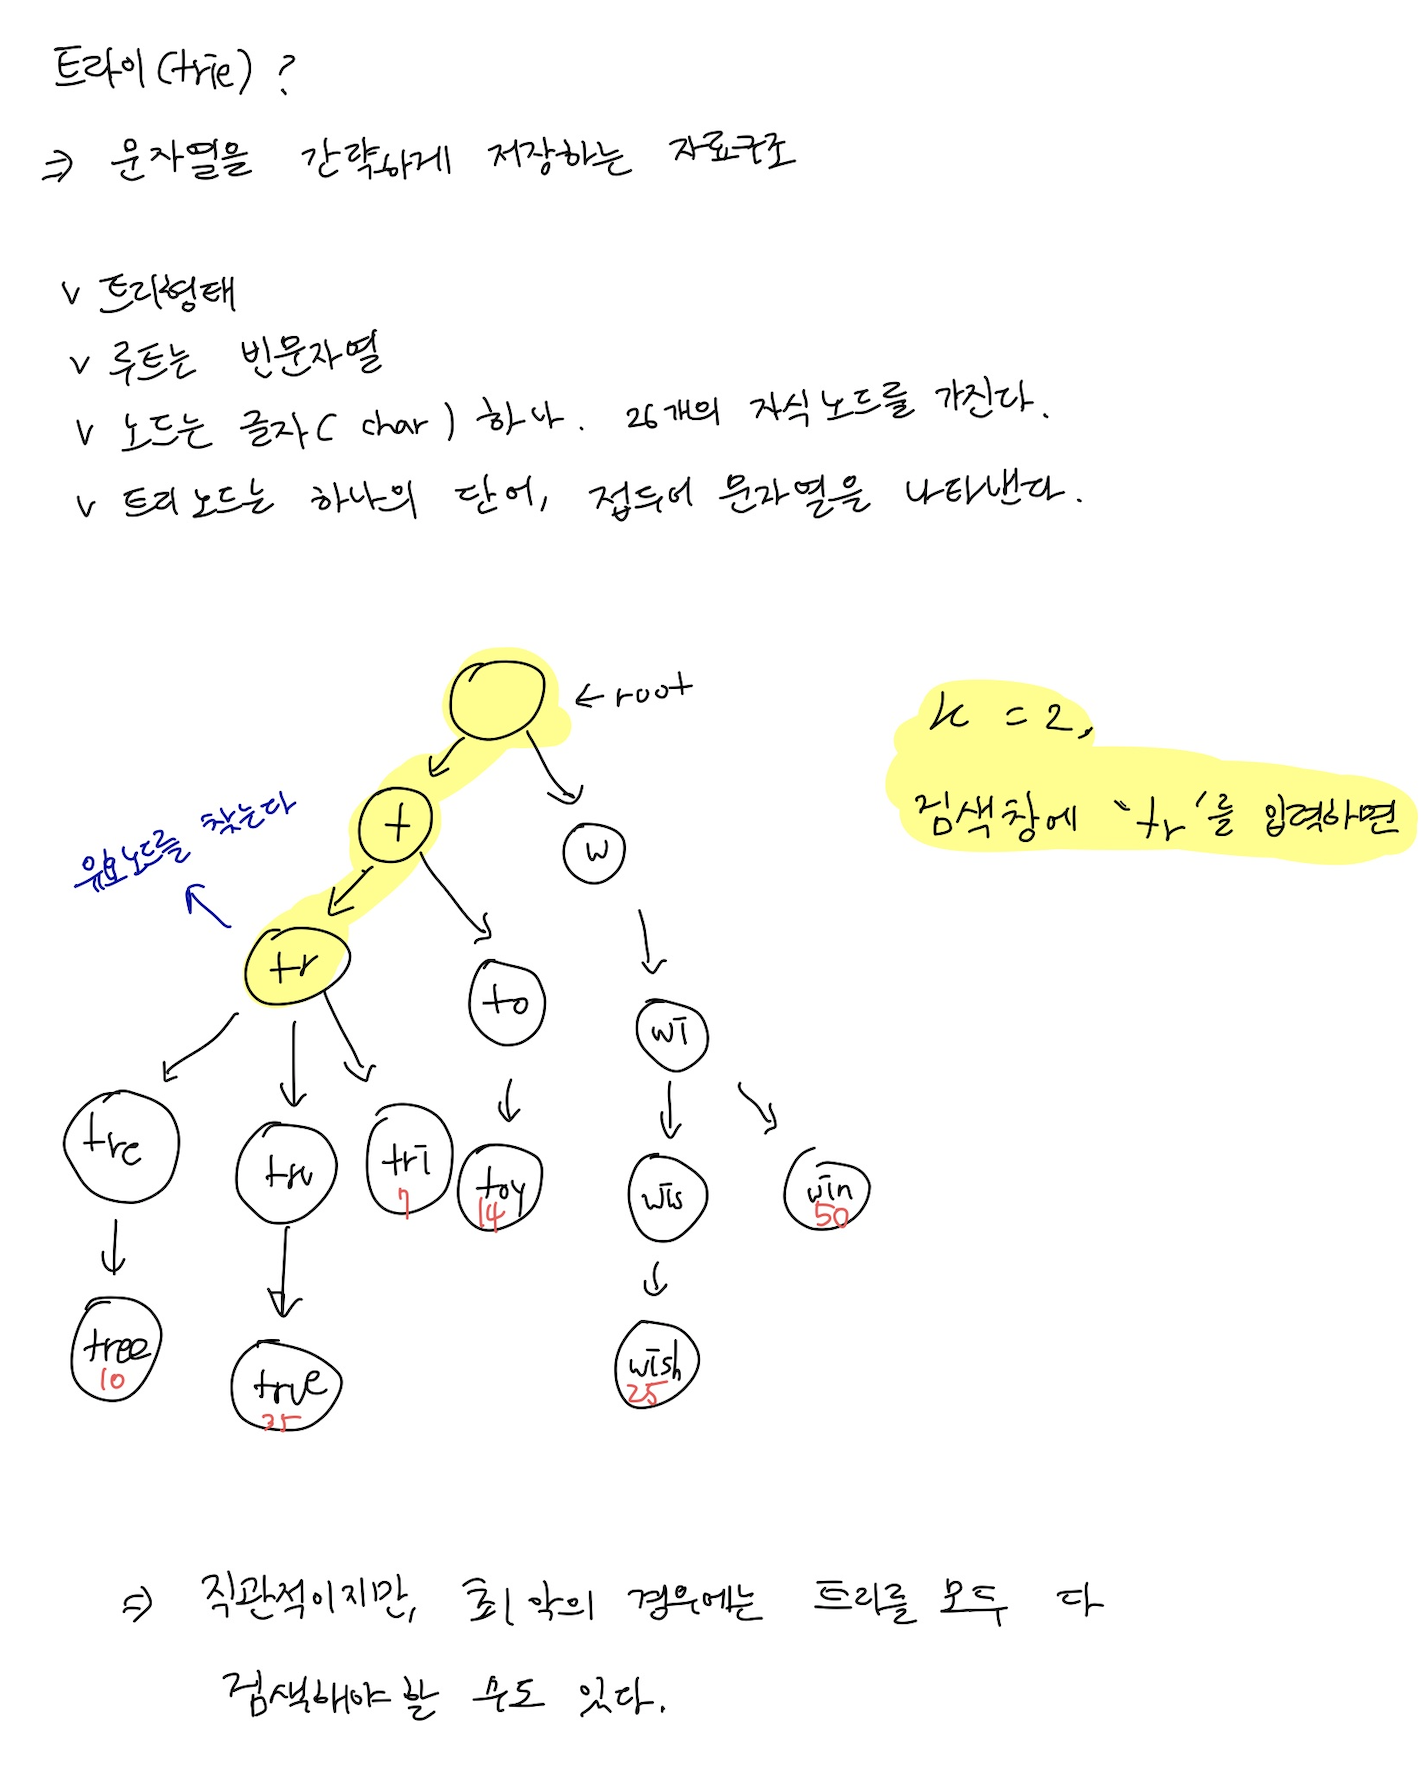 트라이(trie) ?
⇒ 문자열을 간략하게 저장하는 자료구조
v 트리형태
v 루트는 빈문자열
v 노드는 글자( char ) 하나. 26개의 자식노드를 가진다.
v 트리노드는 하나의 단어, 접두어 문자열을 나타낸다.
← root
k = 2,
검색창에 'tr'를 입력하면
유효노드를 찾는다
t
w
tr
to
wi
tre
tru
tri
7
toy
14
wis
win
50
tree
10
true
35
wish
25
⇒ 직관적이지만, 최악의 경우에는 트리를 모두 다
검색해야할 수도 있다.